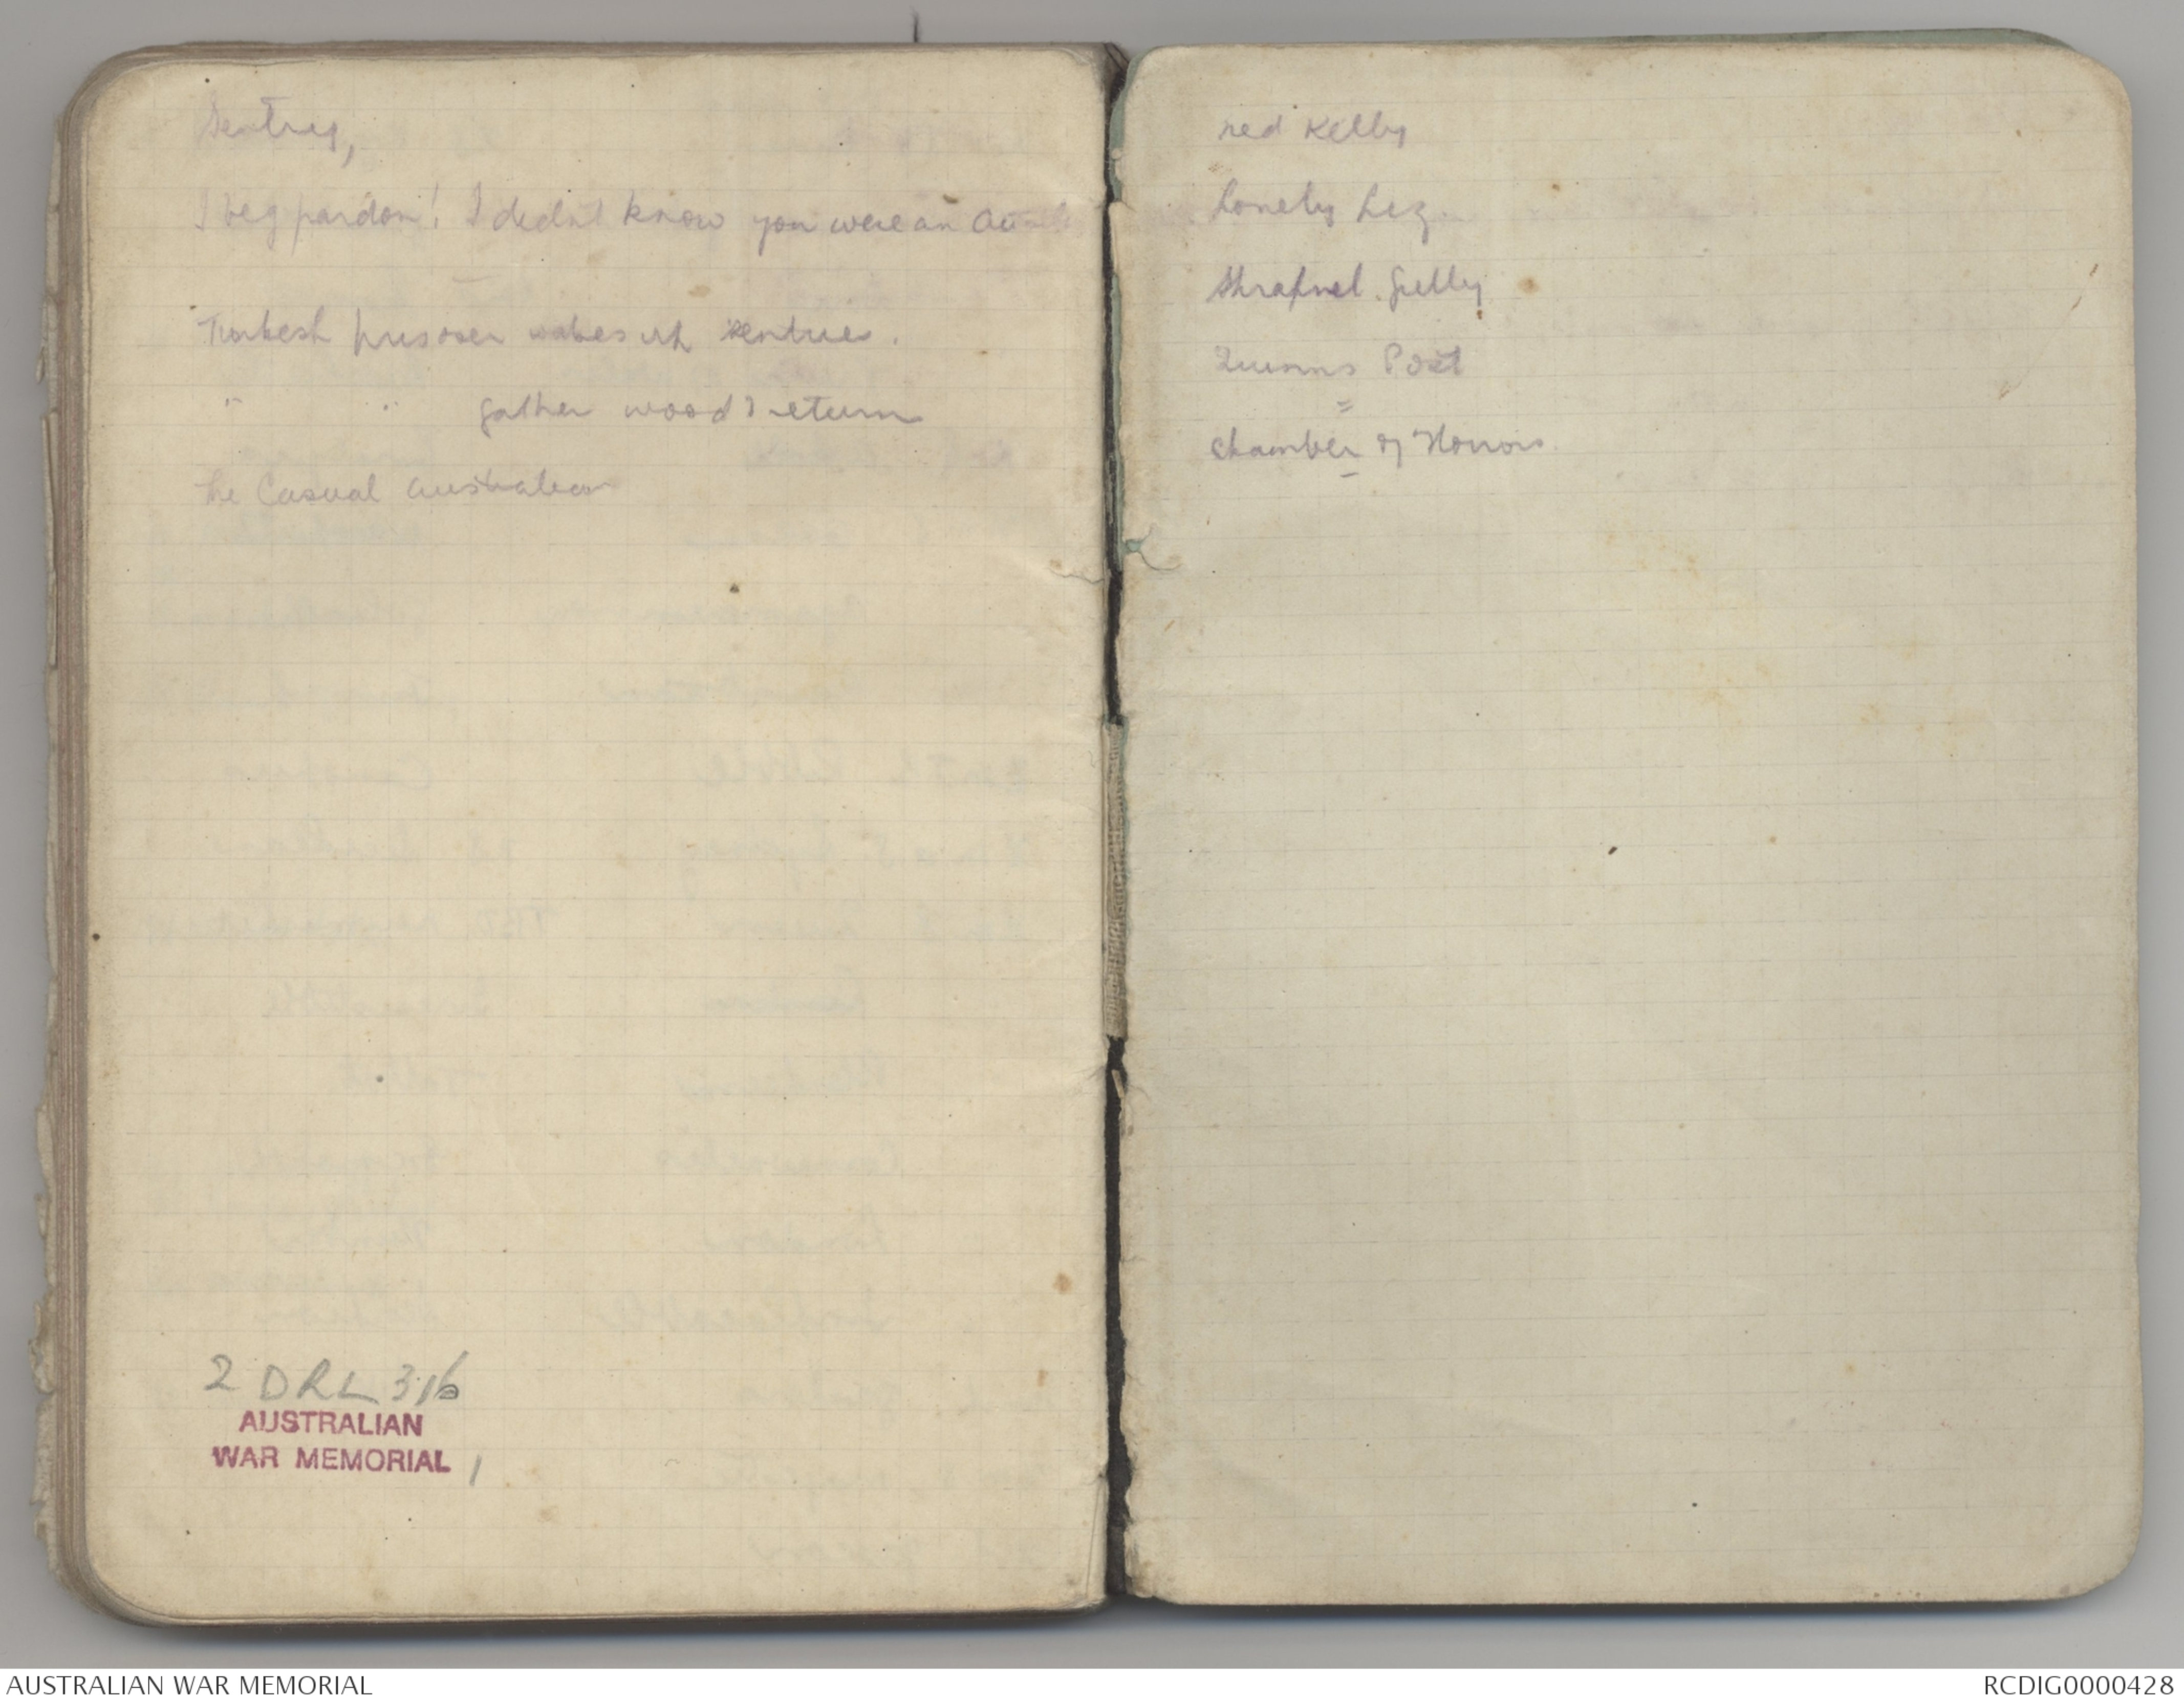 Sentry,
I beg pardon! I didn't know you were an
Turkish prisoner wakes up sentries.
" " gather wood & return
The Casual Australian
2 DRL 316
AUSTRALIAN
WAR MEMORIAL 1
ned Kelly
Lonely Liz
Shrapnel Gully
Quinns Post
=
Chamber of Horrors.
AUSTRALIAN WAR MEMORIAL
RCDIG0000428